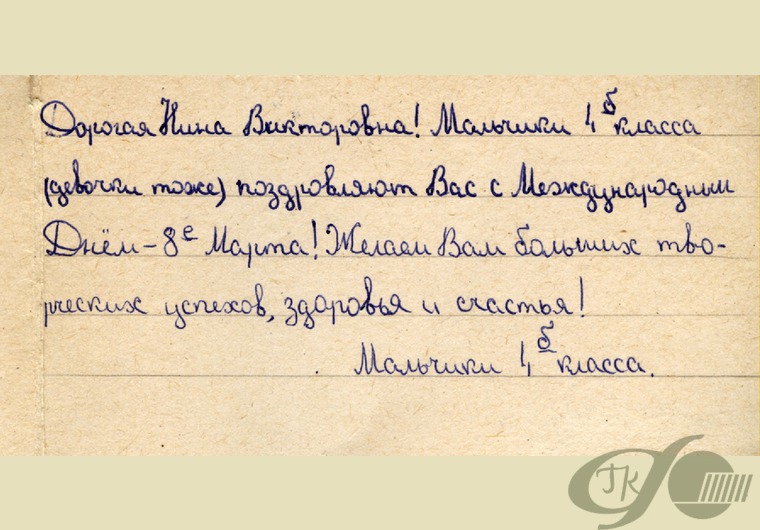 Дорогая Нина Викторовна! Мальчики 4 б класса
(девочки тоже) поздровляют Вас с Международным
Днём - 8 е Марта! Желаем Вам больших тво-
рческих успехов, здоровья и счастья!
Мальчики 4 б класса.
ГК